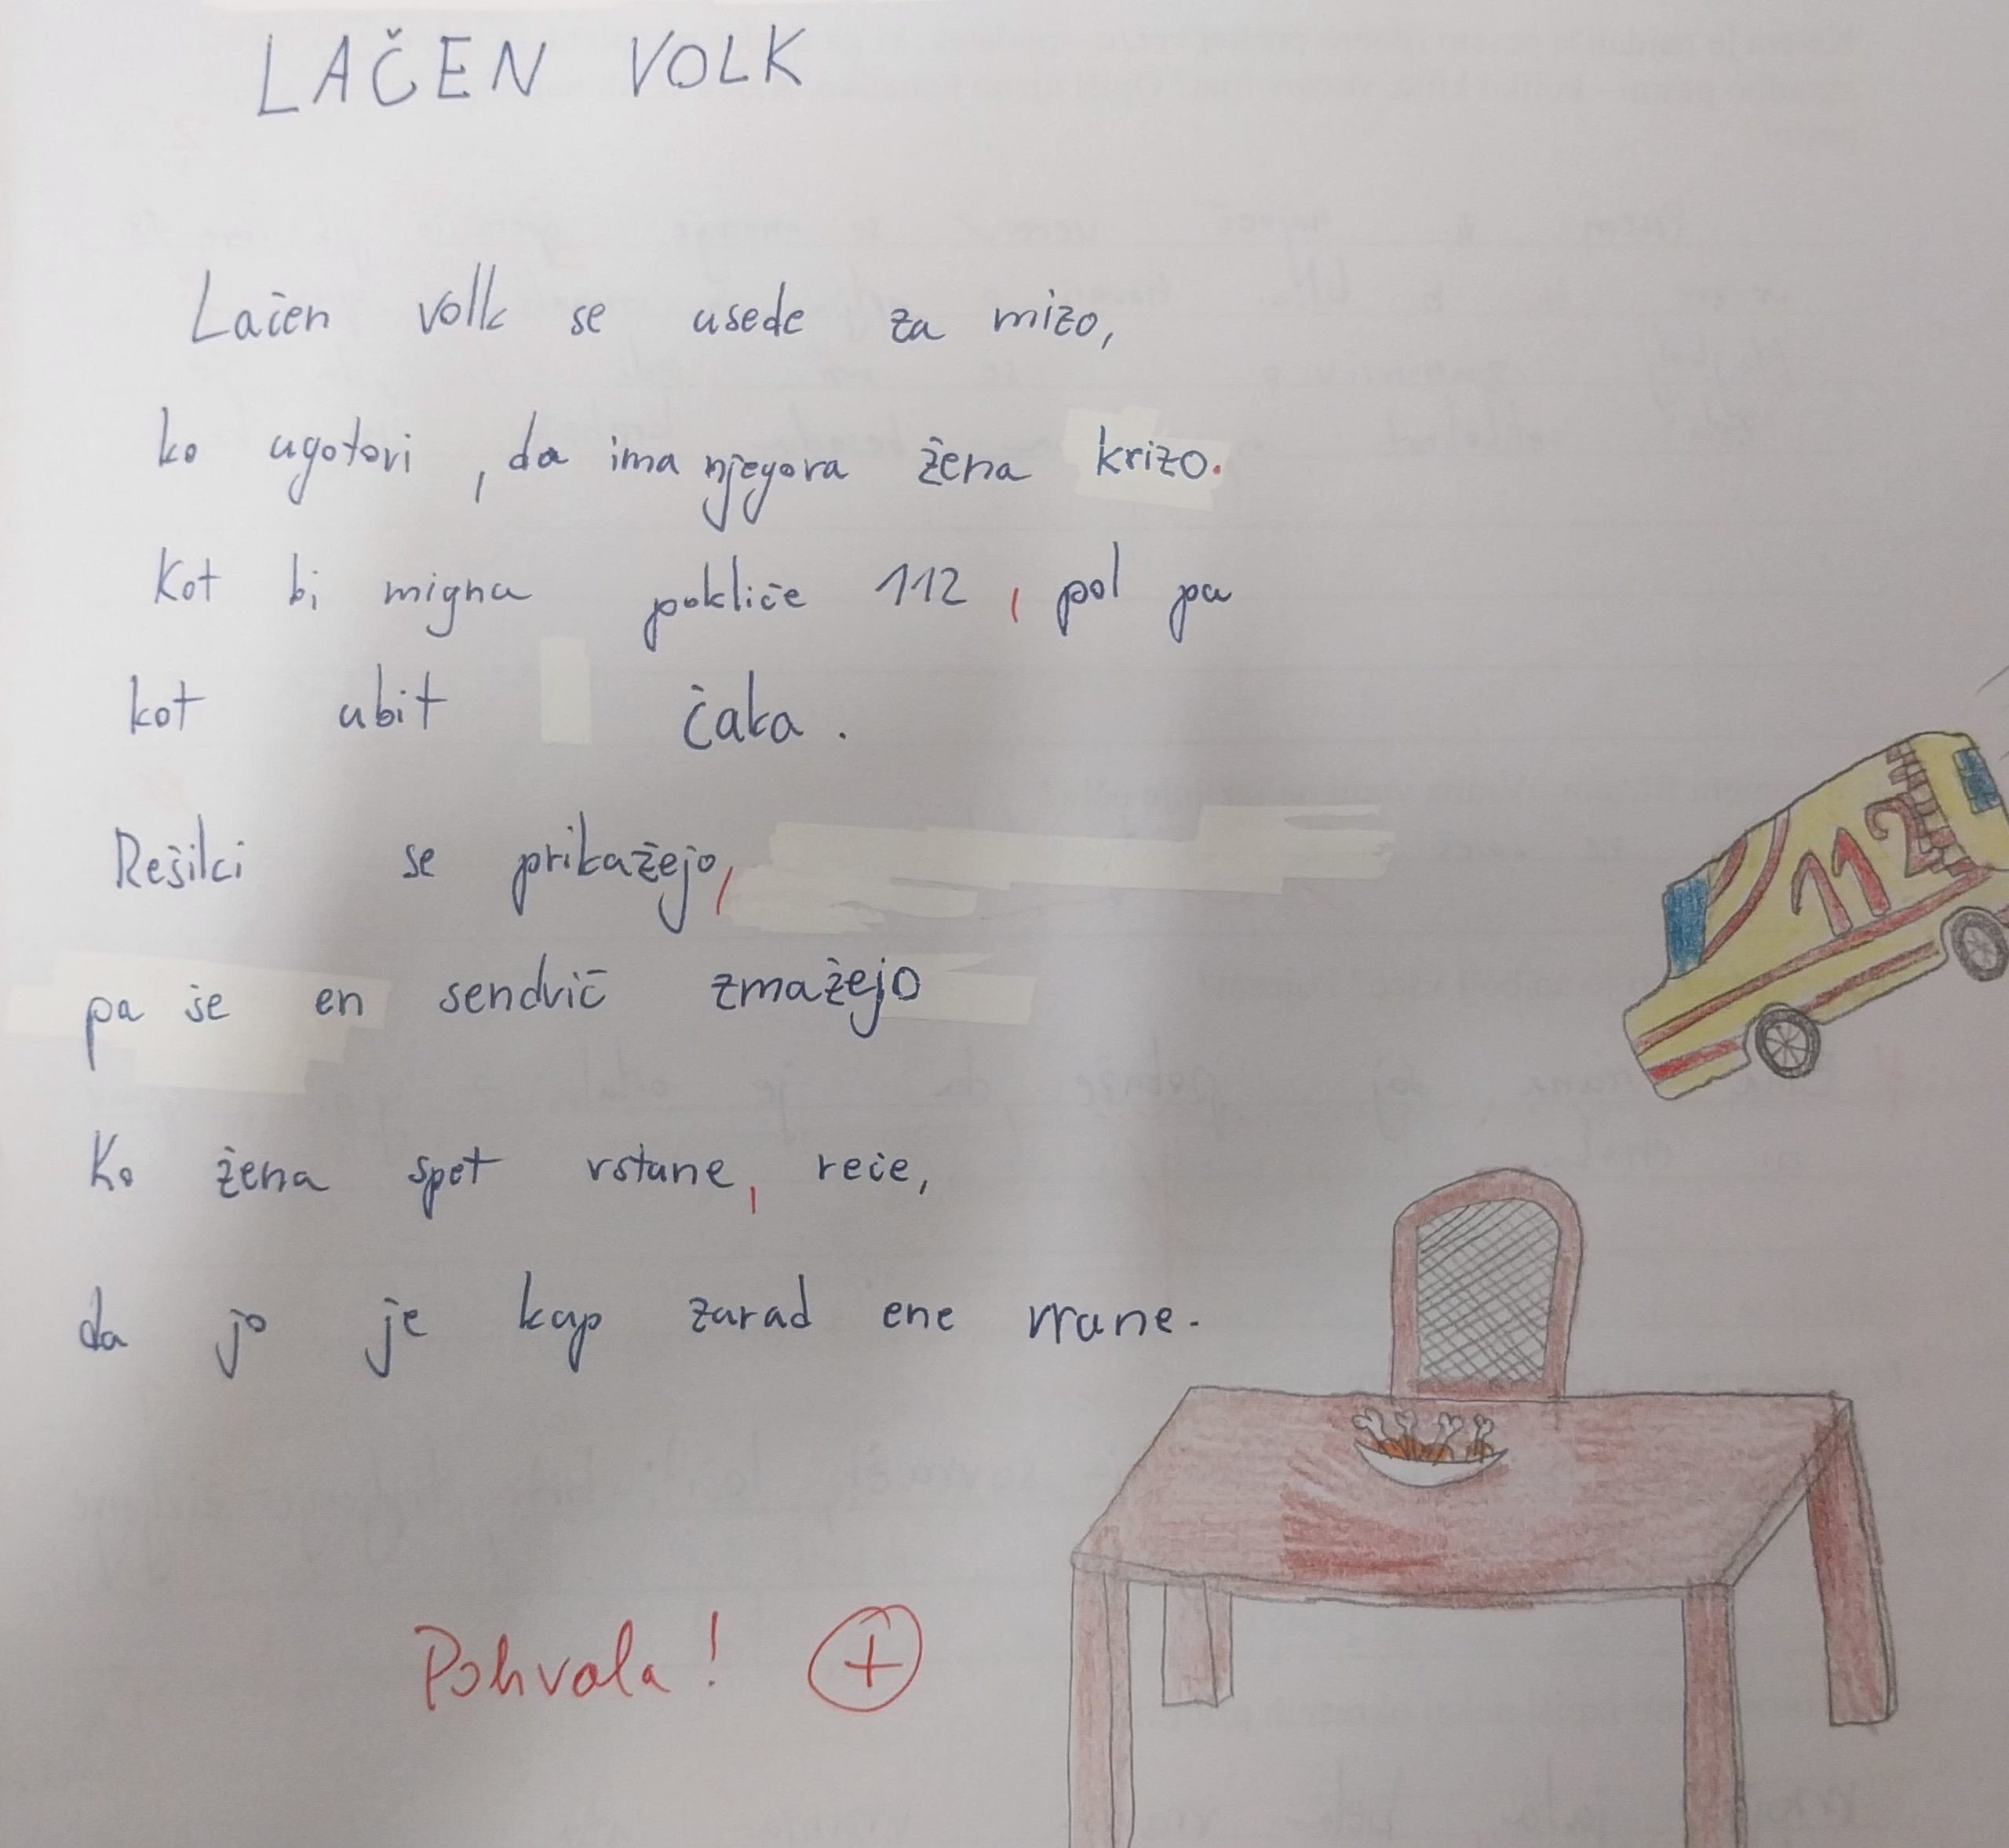 LAČEN VOLK
Lačen volk se usede za mizo,
ko ugotovi, da ima njegova žena krizo.
Kot bi migna pokliče 112, pol pa
kot ubit čaka.
Rešilci se prikažejo,
pa še en sendvič zmažejo
Ko žena spet vstane, reče,
da jo je kap zarad ene vrane.
112
Pohvala! +